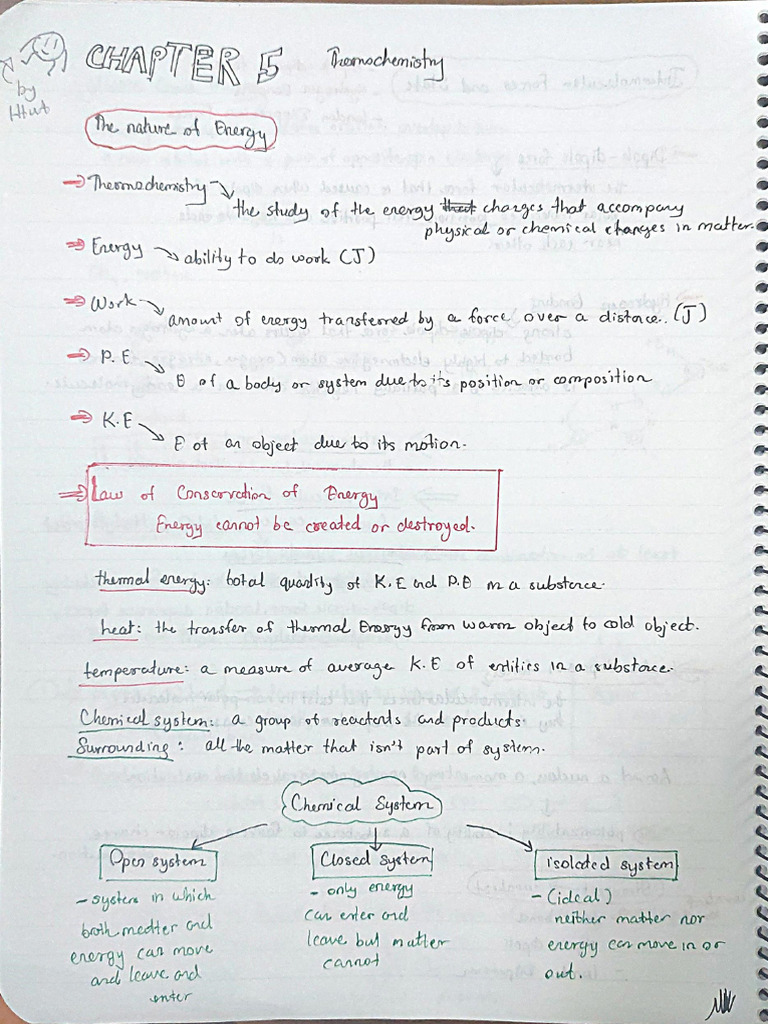 CHAPTER 5 Thermochemistry
by
Htut
The nature of Energy
⇒ Thermochemistry ↘ the study of the energy that changes that accompany
physical or chemical changes in matter.
⇒ Energy ↘ ability to do work (J)
⇒ Work ↘ amount of energy transferred by a force over a distance. (J)
⇒ P.E
↘ E of a body or system due to its position or composition
⇒ K.E
↘ E of an object due to its motion.
⇒ Law of Conservation of Energy
Energy cannot be created or destroyed.
thermal energy: total quantity of K.E and P.E in a substance.
heat: the transfer of thermal Energy from warm object to cold object.
temperature: a measure of average K.E of entities in a substance.
Chemical system: a group of reactants and products.
Surrounding: all the matter that isn't part of system.
Chemical System
Open system
- system in which
both matter and
energy can move
and leave and
enter
Closed system
- only energy
can enter and
leave but matter
cannot
isolated system
- (ideal)
neither matter nor
energy can move in or
out.